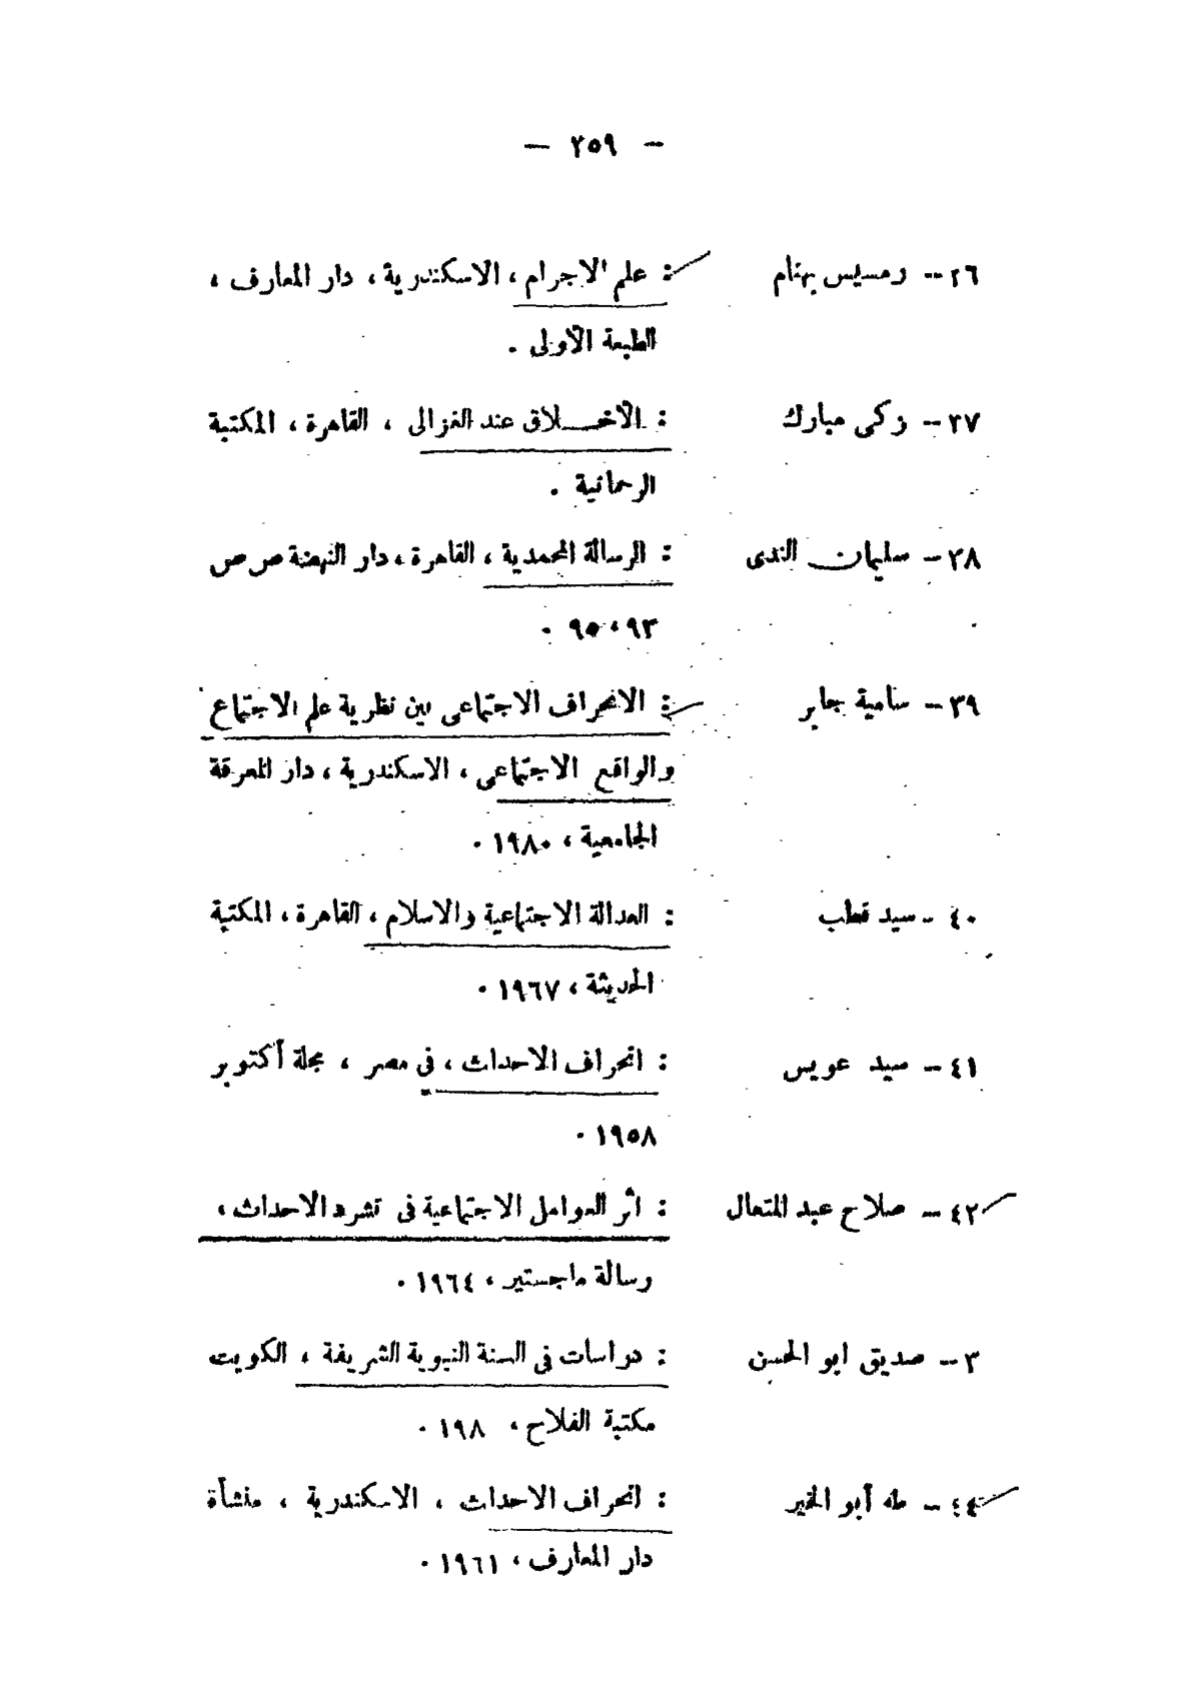 — ٢٥٩ —
٣٦ — رمسيس بهنام : علم الاجرام ، الاسكندرية ، دار المعارف ،
الطبعة الأولى .
٣٧ — زكى مبارك : الاخـــلاق عند الغزالى ، القاهرة ، المكتبة
الرحمانية .
٣٨ — سليمان الندى : الرسالة المحمدية ، القاهرة ، دار النهضة ص ص
٩٣ ، ٩٥ .
٣٩ — سامية جابر : الانحراف الاجتماعى بين نظرية علم الاجتماع
والواقع الاجتماعى ، الاسكندرية ، دار المعرفة
الجامعية ، ١٩٨٠ .
٤٠ — سيد قطب : العدالة الاجتماعية والاسلام ، القاهرة ، المكتبة
الحديثة ، ١٩٦٧ .
٤١ — سيد عويس : انحراف الاحداث ، في مصر ، مجلة أكتوبر
١٩٥٨ .
٤٢ — صلاح عبد المتعال : اثر العوامل الاجتماعية فى تشرد الاحداث ،
رسالة ماجستير ، ١٩٦٤ .
٣ — صديق ابو الحسن : دراسات فى السنة النبوية الشريفة ، الكويت
مكتبة الفلاح ، ١٩٨ .
٤٤ — طه أبو الخير : انحراف الاحداث ، الاسكندرية ، منشأة
دار المعارف ، ١٩٦١ .